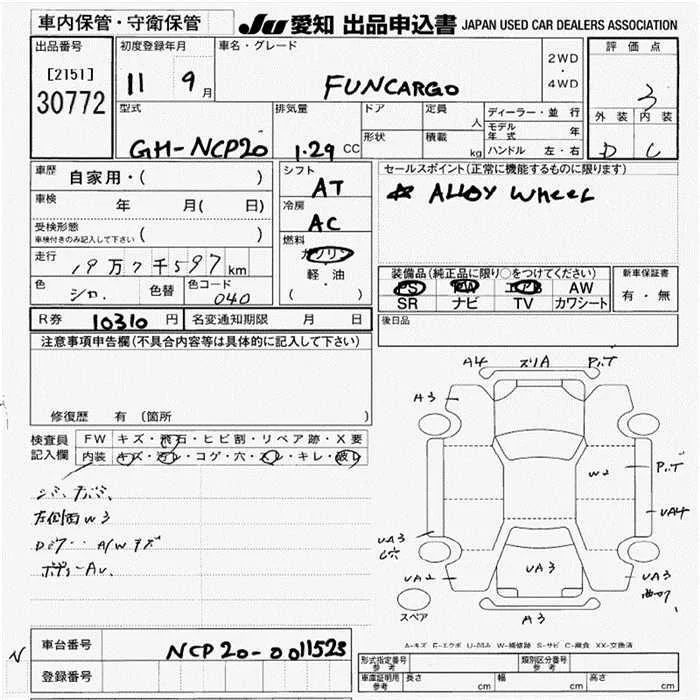 車内保管・守衛保管
JU 愛知 出品申込書 JAPAN USED CAR DEALERS ASSOCIATION
出品番号
[2151]
30772
初度登録年月
11 9月
車名・グレード
FUNCARGO
2WD
・
4WD
評価点
3
外装 内装
D C
型式
GH-NCP20
排気量
1.29 CC
ドア
形状
定員
人
積載
kg
ディーラー・並行
モデル年式 年
ハンドル 左・右
車歴 自家用・( )
車検 年 月( 日)
受検形態
車検付きのみ記入して下さい ( )
走行 19万7千597 km
色 シロ. 色替 色コード 040
シフト
AT
冷房
AC
燃料
ガソリン
・
軽・油
( )
セールスポイント(正常に機能するものに限ります)
☆ ALLOY WHEEL
装備品(純正品に限り○をつけてください)
PS PW エアB AW
SR ナビ TV カワシート
新車保証書
有・無
R券 10310 円 名変通知期限 月 日
後日品
注意事項申告欄(不具合内容等は具体的に記入して下さい)
修復歴 有 (箇所 )
検査員
記入欄
FW キズ・飛石・ヒビ割・リペア跡・X要
内装 キズ・汚レ・コゲ・穴・スレ・キレ・破レ
左側面W3
A/Wキズ
A4 ズリA
A3
W2
UA4
UA3
穴
UA2
UA3
UA3
A3
スペア
A-キズ E-エクボ U-凹み W-補修跡 S-サビ C-腐食 XX-交換済
N
車台番号 NCP20-0011523
登録番号
形式指定番号
参考
類別区分番号
参考
車庫証明用
参考
長さ cm 幅 cm 高さ cm